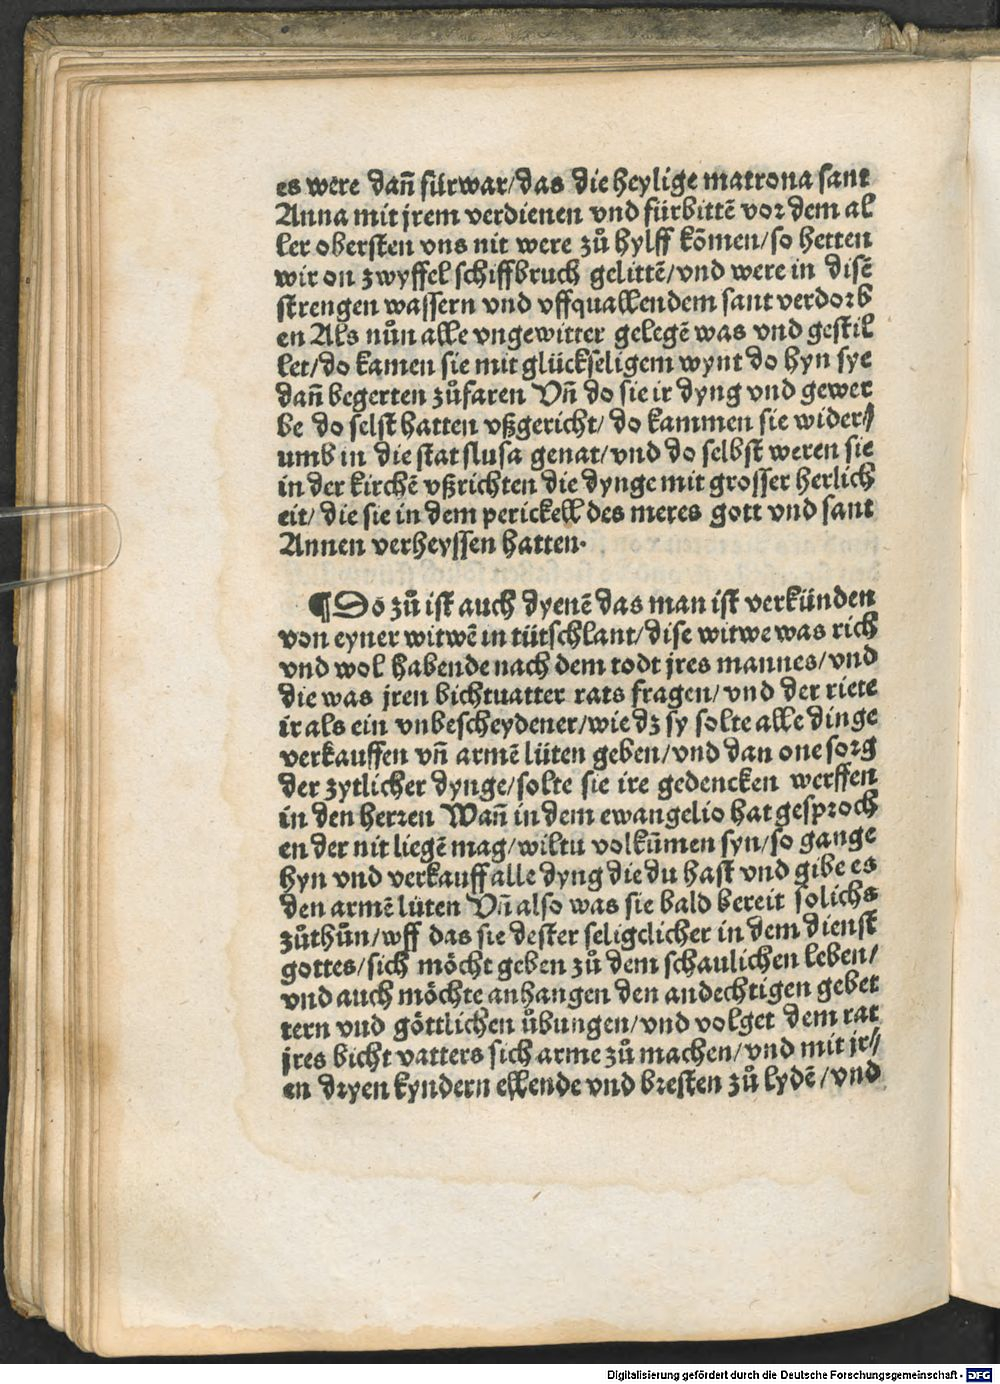 es were dañ fürwar/das die heylige matrona sant
Anna mit jrem verdienen vnd fürbittē vor dem al
ler obersten vns nit were zů hylff kōmen/so hetten
wir on zwyffel schiffbruch gelittē/vnd were in disē
strengen wassern vnd vffquallendem sant verdorb
en Als nůn alle vngewitter gelegē was vnd gestil
let/do kamen sie mit glückseligem wynt do hyn sye
dañ begerten zůfaren Vñ do sie ir dyng vnd gewer
be do selst hatten vßgericht/ do kammen sie wider//
umb in die stat slusa genat/vnd do selbst weren sie
in der kirchē vßrichten die dynge mit grosser herlich
eit/ die sie in dem perickell des meres gott vnd sant
Annen verheyssen hatten.
¶ Do zů ist auch dyenē das man ist verkünden
von eyner witwē in tütschlant/dise witwe was rich
vnd wol habende nach dem todt jres mannes/vnd
die was jren bichtuatter rats fragen/vnd der riete
ir als ein vnbescheydener/wie dz sy solte alle dinge
verkauffen vñ armē lüten geben/vnd dan one sorg
der zytlicher dynge/solte sie ire gedencken werffen
in den herren Wañ in dem ewangelio hat gesproch
en der nit liegē mag/wiltu volkūmen syn/so gange
hyn vnd verkauff alle dyng die du hast vnd gibe es
den armē lüten Vñ also was sie bald bereit solichs
zůthůn/vff das sie dester seligclicher in dem dienst
gottes/sich möcht geben zů dem schaulichen leben/
vnd auch möchte anhangen den andechtigen gebet
tern vnd göttlichen übungen/vnd volget dem rat
jres bicht vatters sich arme zů machen/vnd mit jr//
en dryen kyndern ellende vnd bresten zů lydē/vnd
Digitalisierung gefördert durch die Deutsche Forschungsgemeinschaft - DFG